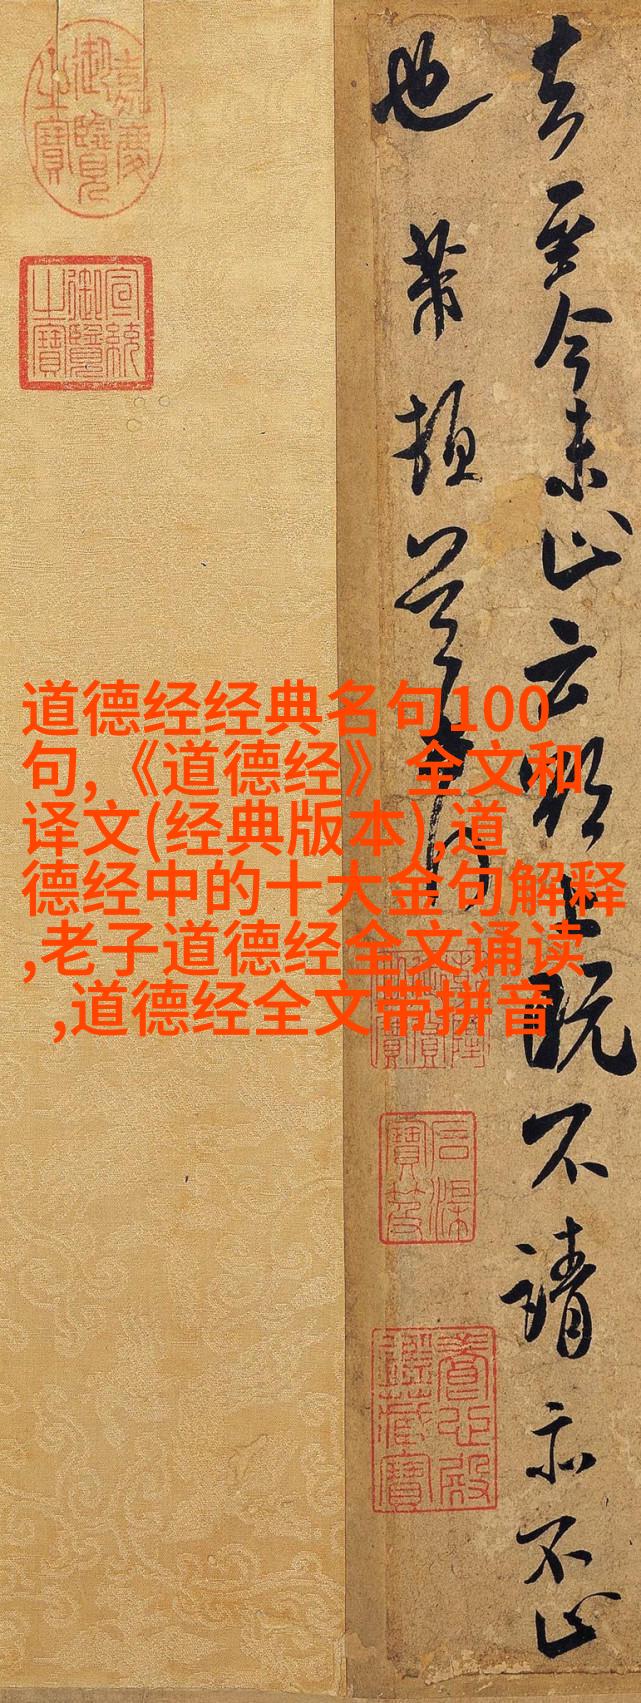 嘉慶御覽之寶
宣統御覽之寶
去至今未止云既不請亦不止
也芾頓首
道德经经典名句100
句,《道德经》全文和
译文(经典版本),道
德经中的十大金句解释
,老子道德经全文诵读
,道德经全文带拼音
石渠寶笈
養心殿鑑藏寶